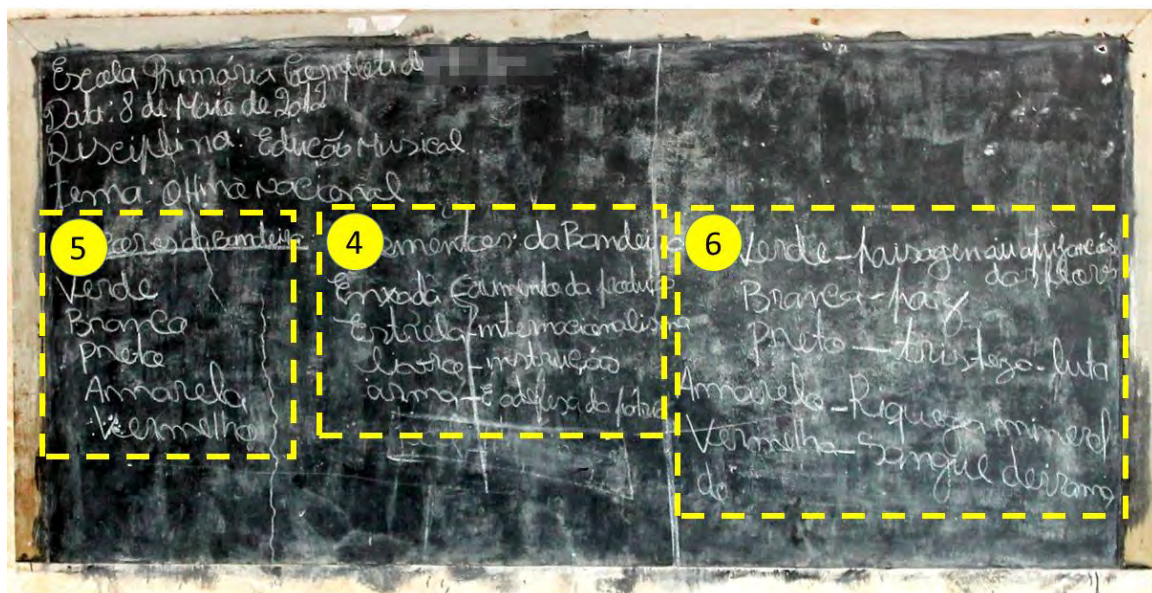 Escola Primária Completa de
Data: 8 de Maio de 2012
Disciplina: Edução Musical
tema: O Hino Nacional
5
cores da Bandeira
Verde
Branca
Preto
Amarela
Vermelho
4
ementos da Bandeira
Enxada É aumento da
Estrela - internacionalismo
livro - instrução
arma - É a defesa da
6
Verde - paisagem
das flores
Branca - paz
Preto - tristeza - luta
Amarelo - Riqueza mineral
Vermelho - Sangue derrama
do